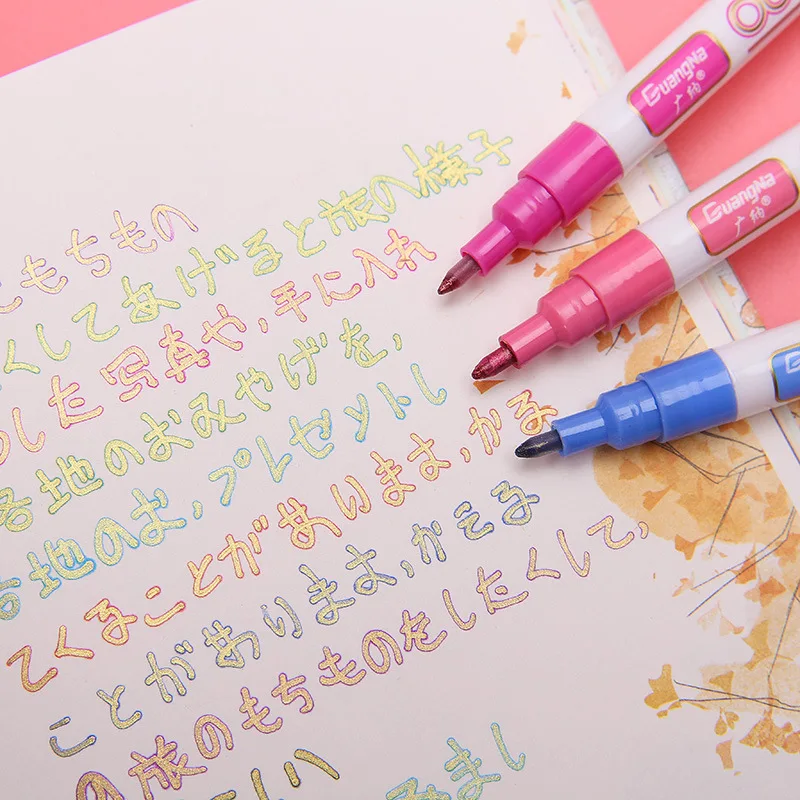 もちもの
くしてあげると旅の様子
した写真や,手に入れ
各地のおみやげを,
地のお,プレゼントし
てくることがあります,かる
ことがあります,かえる
の旅のもちものをしたくして,
GuangNa®
广纳
GuangNa®
广纳